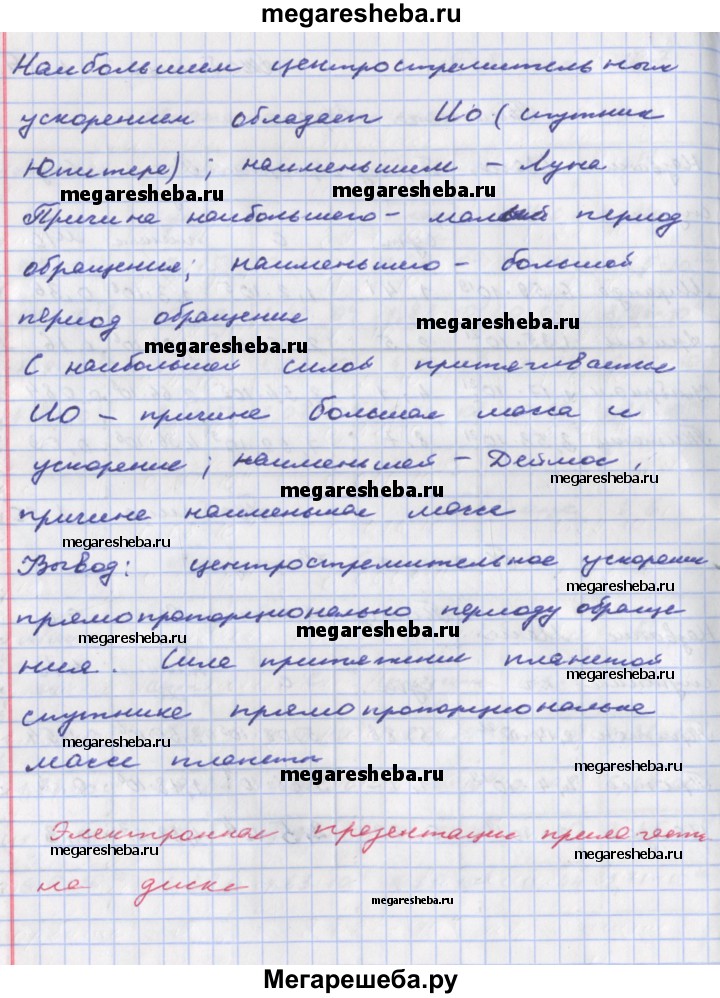 megaresheba.ru
Наибольшем центростремительных
ускорением обладает Ио (спутник
Юпитера); наименьшем - Луна
megaresheba.ru megaresheba.ru
Причина наибольшего - малый период
обращение; наименьшего - большой
период обращение
megaresheba.ru
megaresheba.ru
С наибольшей силой притягивается
ИО - причине большая масса и
ускорение; наименьшей - Деймос,
megaresheba.ru megaresheba.ru
причине наименьшая масса
megaresheba.ru
Вывод: центростремительное ускорение
megaresheba.ru
прямопропорционально периоду обраще
megaresheba.ru megaresheba.ru
ния. Сила притяжения планетой
megaresheba.ru
спутнике прямопропорциональна
megaresheba.ru
массе планеты
megaresheba.ru megaresheba.ru
Электронная презентации прилагается
megaresheba.ru megaresheba.ru
на диске
megaresheba.ru
Мегарешеба.ру